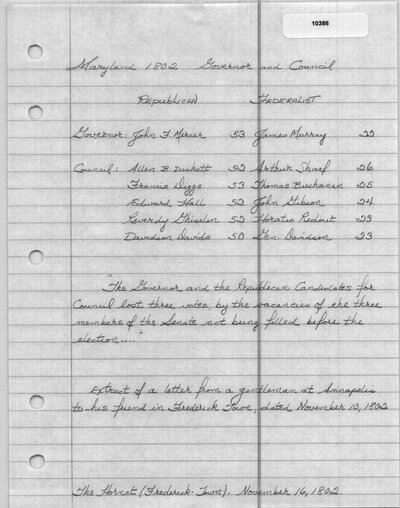 10386
Maryland 1802 Governor and Council
Republican Federalist
Governor: John F. Mercer 53 James Murray 22
Council: Allen B. Duckett 52 Arthur Shaaf 26
Francis Diggs 53 Thomas Buchanan 25
Edward Hall 52 John Gibson 24
Reverdy Ghiselen 52 Horatio Ridout 23
Davidson Davids 50 Gen. Davidson 23
"The Governor and the Republican Candidates for
Council lost three votes, by the vacancies of the three
members of the Senate not being filled before the
election...."
Extract of a letter from a gentleman at Annapolis
to his friend in Frederick Town, dated November 10, 1802
The Hornet (Frederick-Town). November 16, 1802.